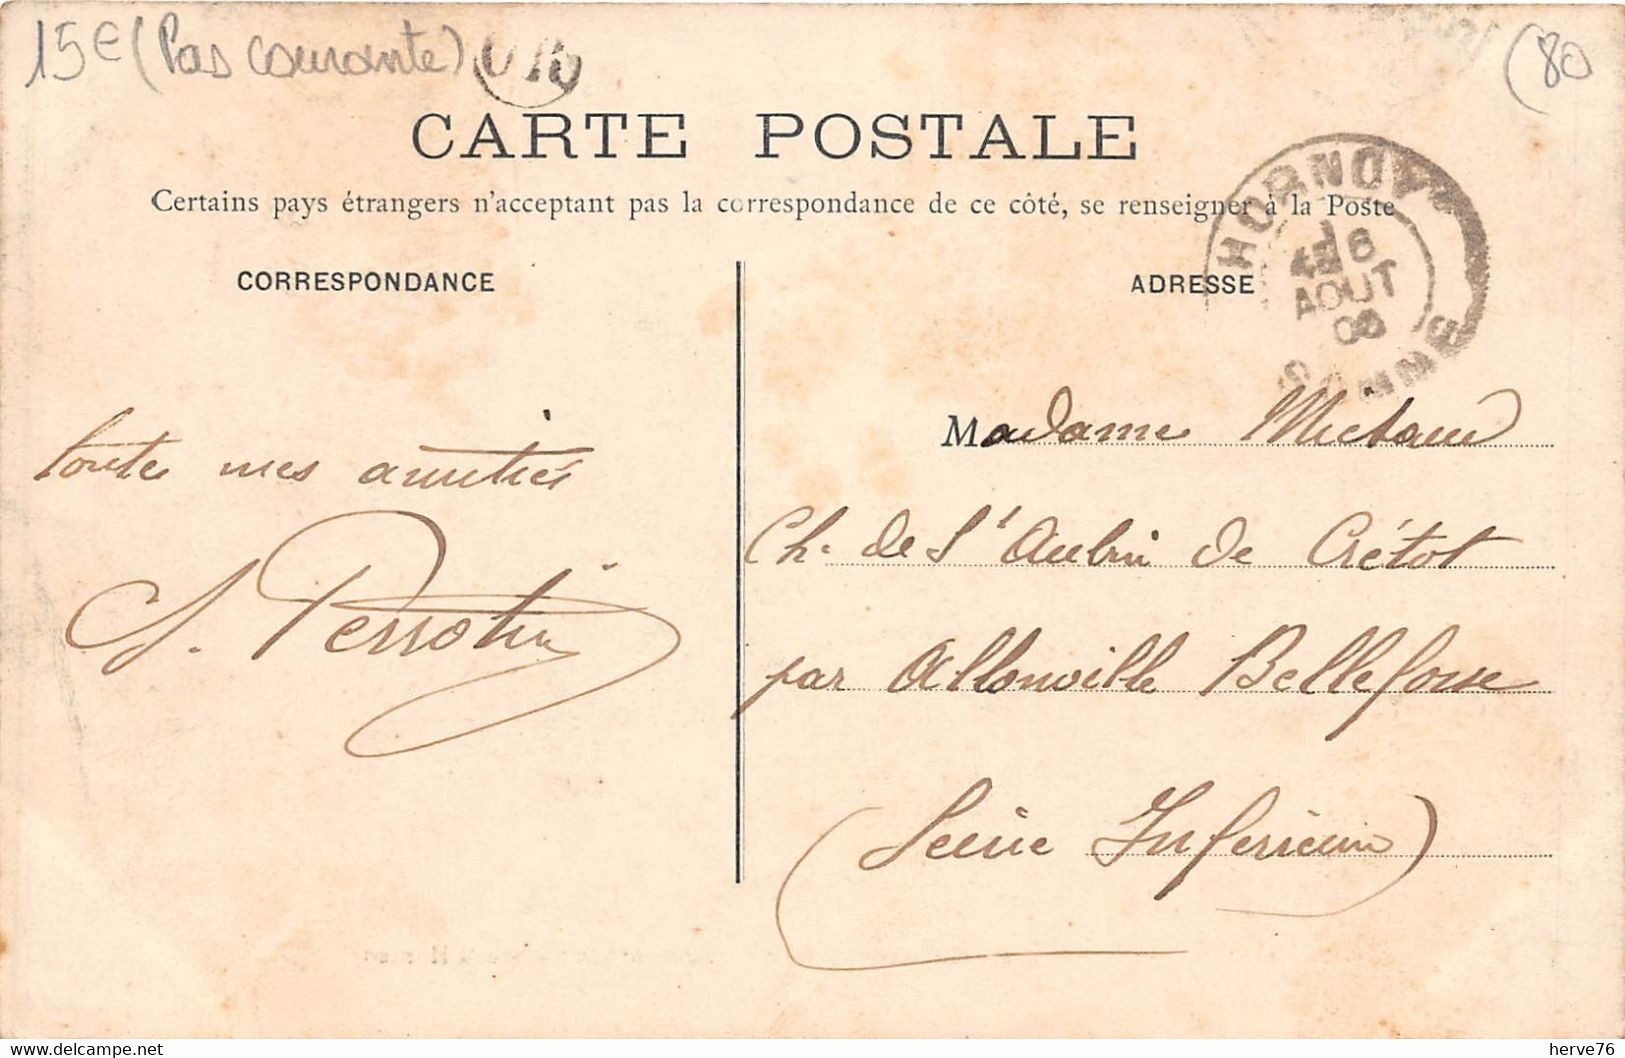 15€ (Pas courante) OR
(80
CARTE POSTALE
Certains pays étrangers n'acceptant pas la correspondance de ce côté, se renseigner à la Poste
HORNOY
6
AOUT
06
SOMME
CORRESPONDANCE
ADRESSE
toute mes amitiés
S. Perrotin
Madame
Ch. de St Aubin de Crétot
par Allonville Bellefosse
(Seine Inférieure)
herve76